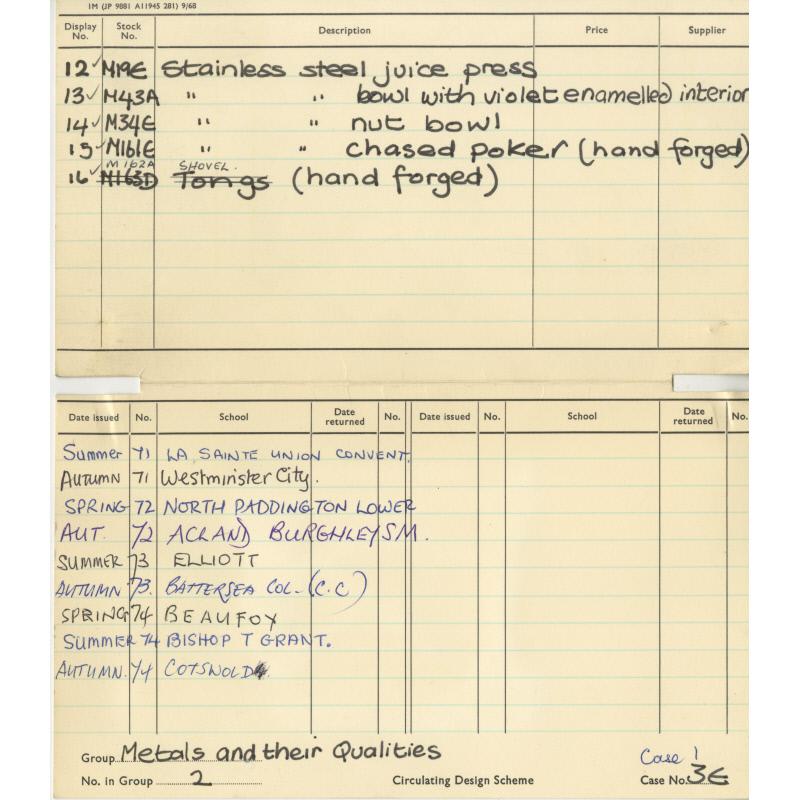 1M (JP 9881 A11945 281) 9/68
Display No. Stock No. Description Price Supplier
12 ✓ M19E Stainless steel juice press
13 ✓ M43A " " bowl with violet enamelled interior
14 ✓ M34E " " nut bowl
15 ✓ M161E " " chased poker (hand forged)
M162A SHOVEL.
16 ✓ M163D Tongs (hand forged)
Date issued No. School Date returned No. Date issued No. School Date returned No.
Summer 71 LA SAINTE UNION CONVENT.
AUTUMN 71 Westminster City.
SPRING 72 NORTH PADDINGTON LOWER
AUT. 72 ACLAND BURGHLEY SM.
SUMMER 73 ELLIOTT
AUTUMN 73. BATTERSEA COL. (C.C)
SPRING 74 BEAUFOY
SUMMER 74 BISHOP T GRANT.
AUTUMN. 74 COTSWOLD
Group Metals and their Qualities Case 1
No. in Group 2 Circulating Design Scheme Case No. 3E